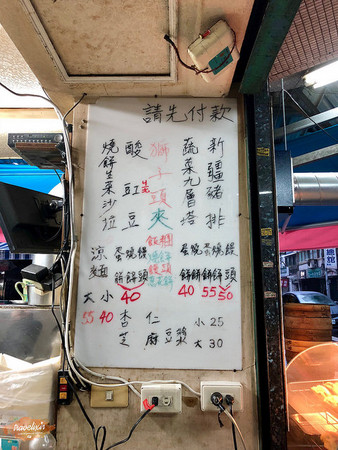 請先付款
新疆豬排
蔬菜九層塔
獅子頭夾
酸豇豆
燒餅生菜沙拉
饅頭
燒餅
蛋餅
40 55 50
饅頭
燒餅
蛋餅
40
涼麵
大 小
55 40
杏仁
芝麻豆漿
小 25
大 30